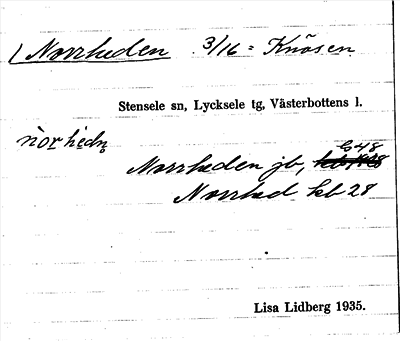 / Norrheden 3/16 = Knösen
Stensele sn, Lycksele tg, Västerbottens l.
nòr hèdn̥
Norrheden jb,
Norrhed kb 28
Lisa Lidberg 1935.